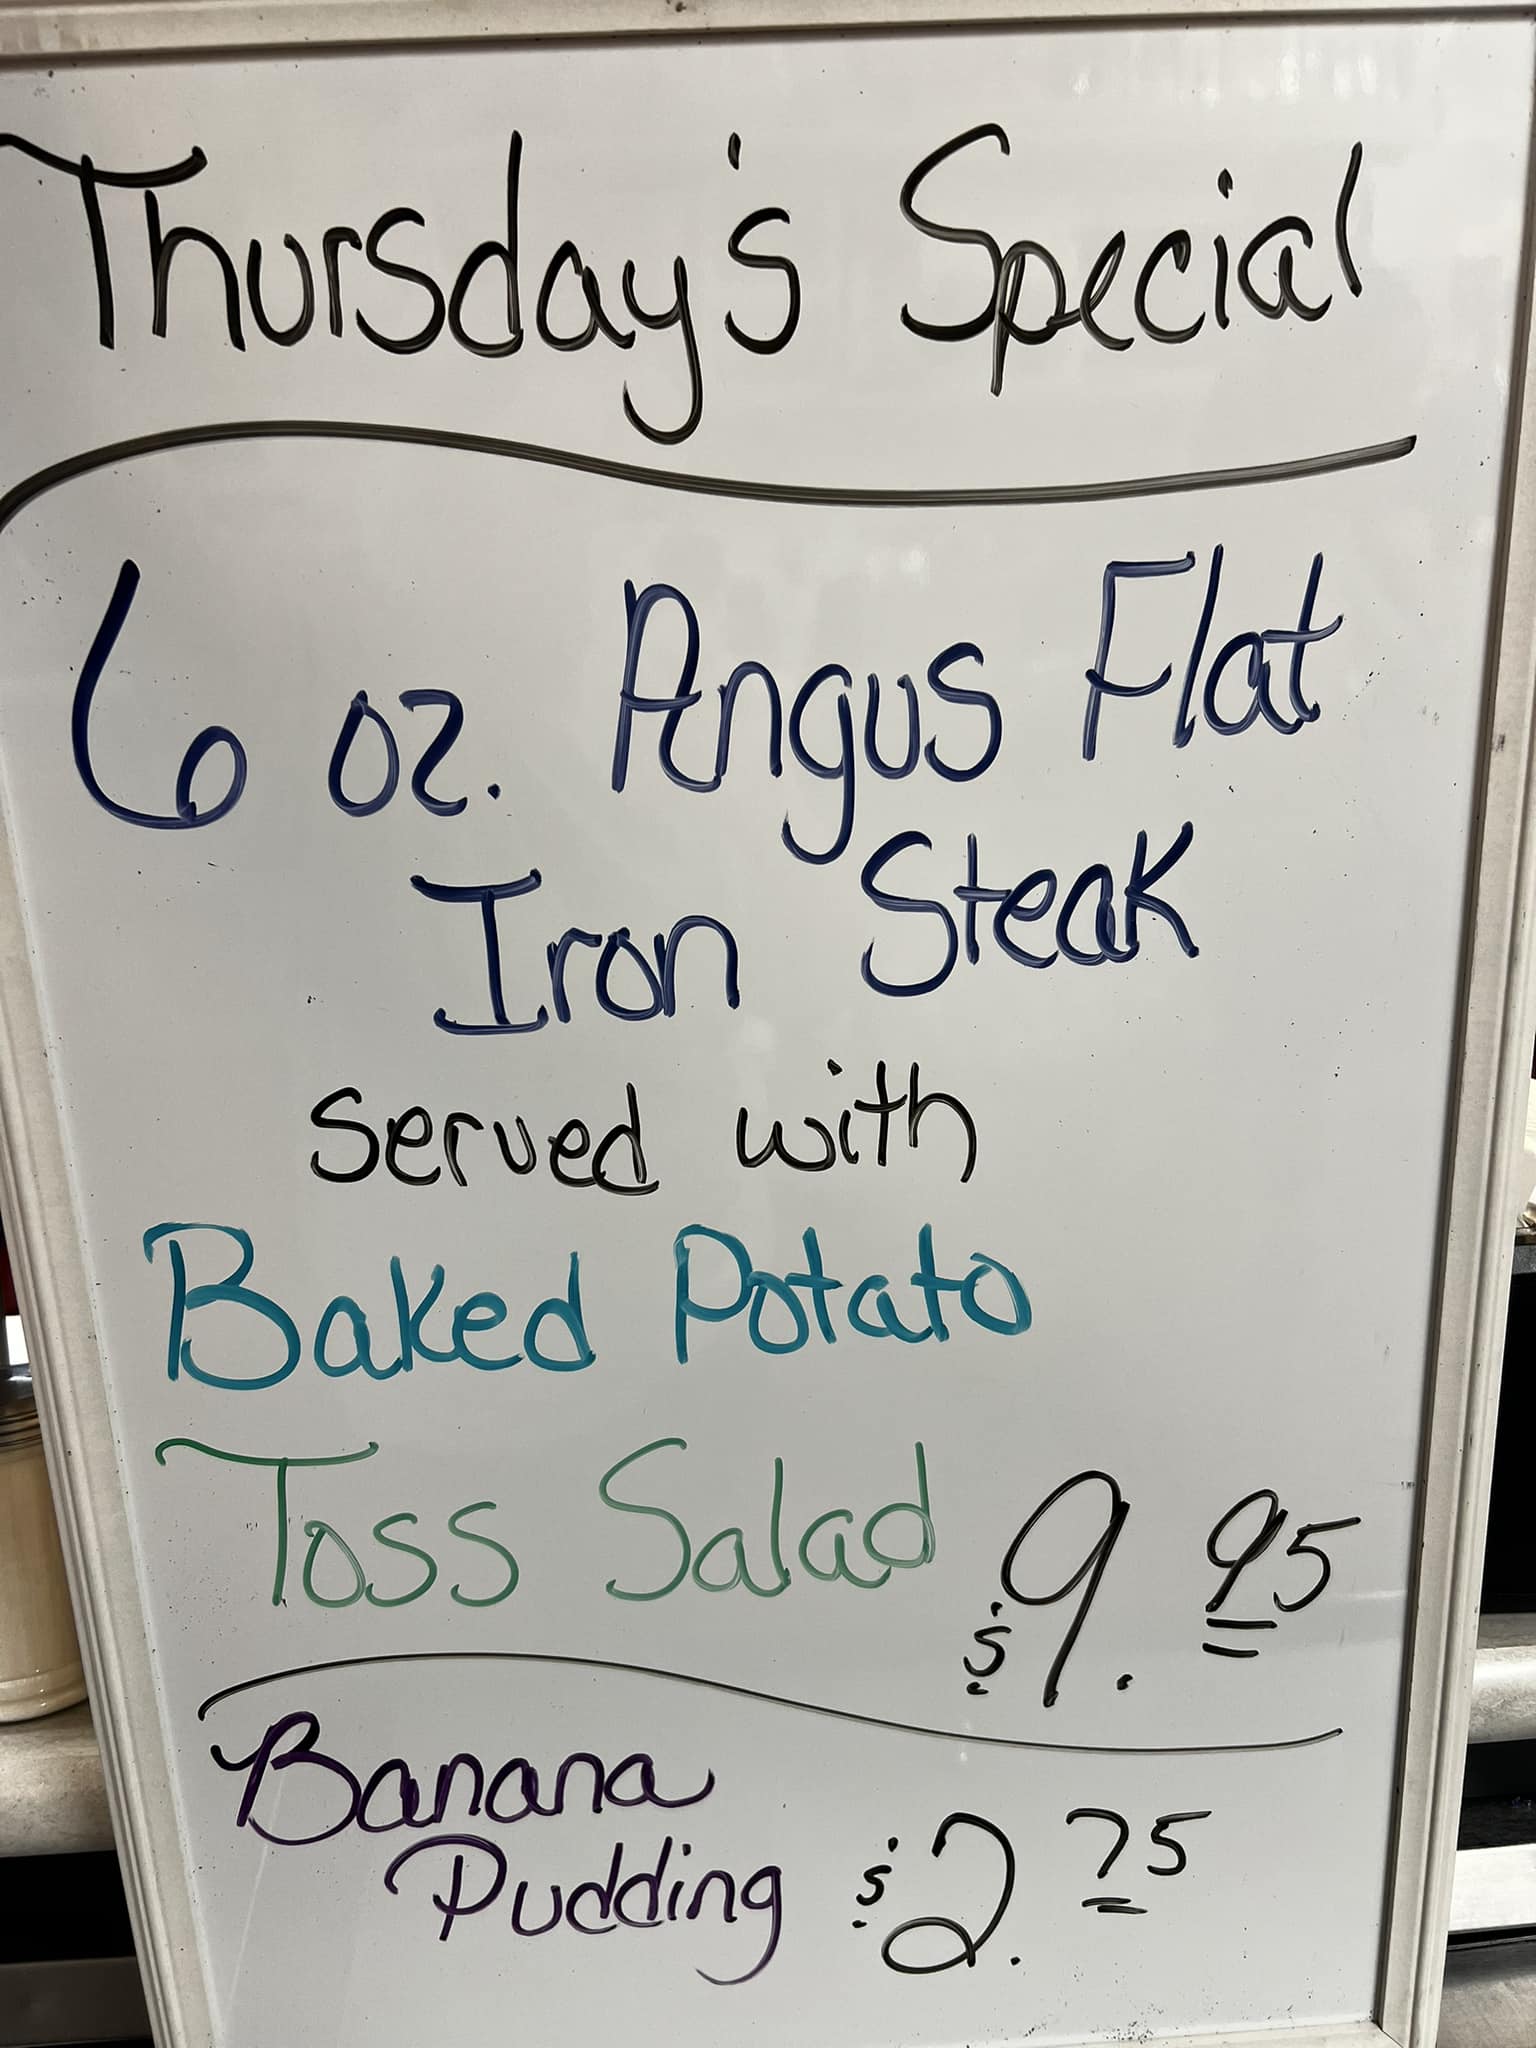 Thursday's Special
6 oz. Angus Flat
Iron Steak
served with
Baked Potato
Toss Salad $9.95
Banana
Pudding $2.75